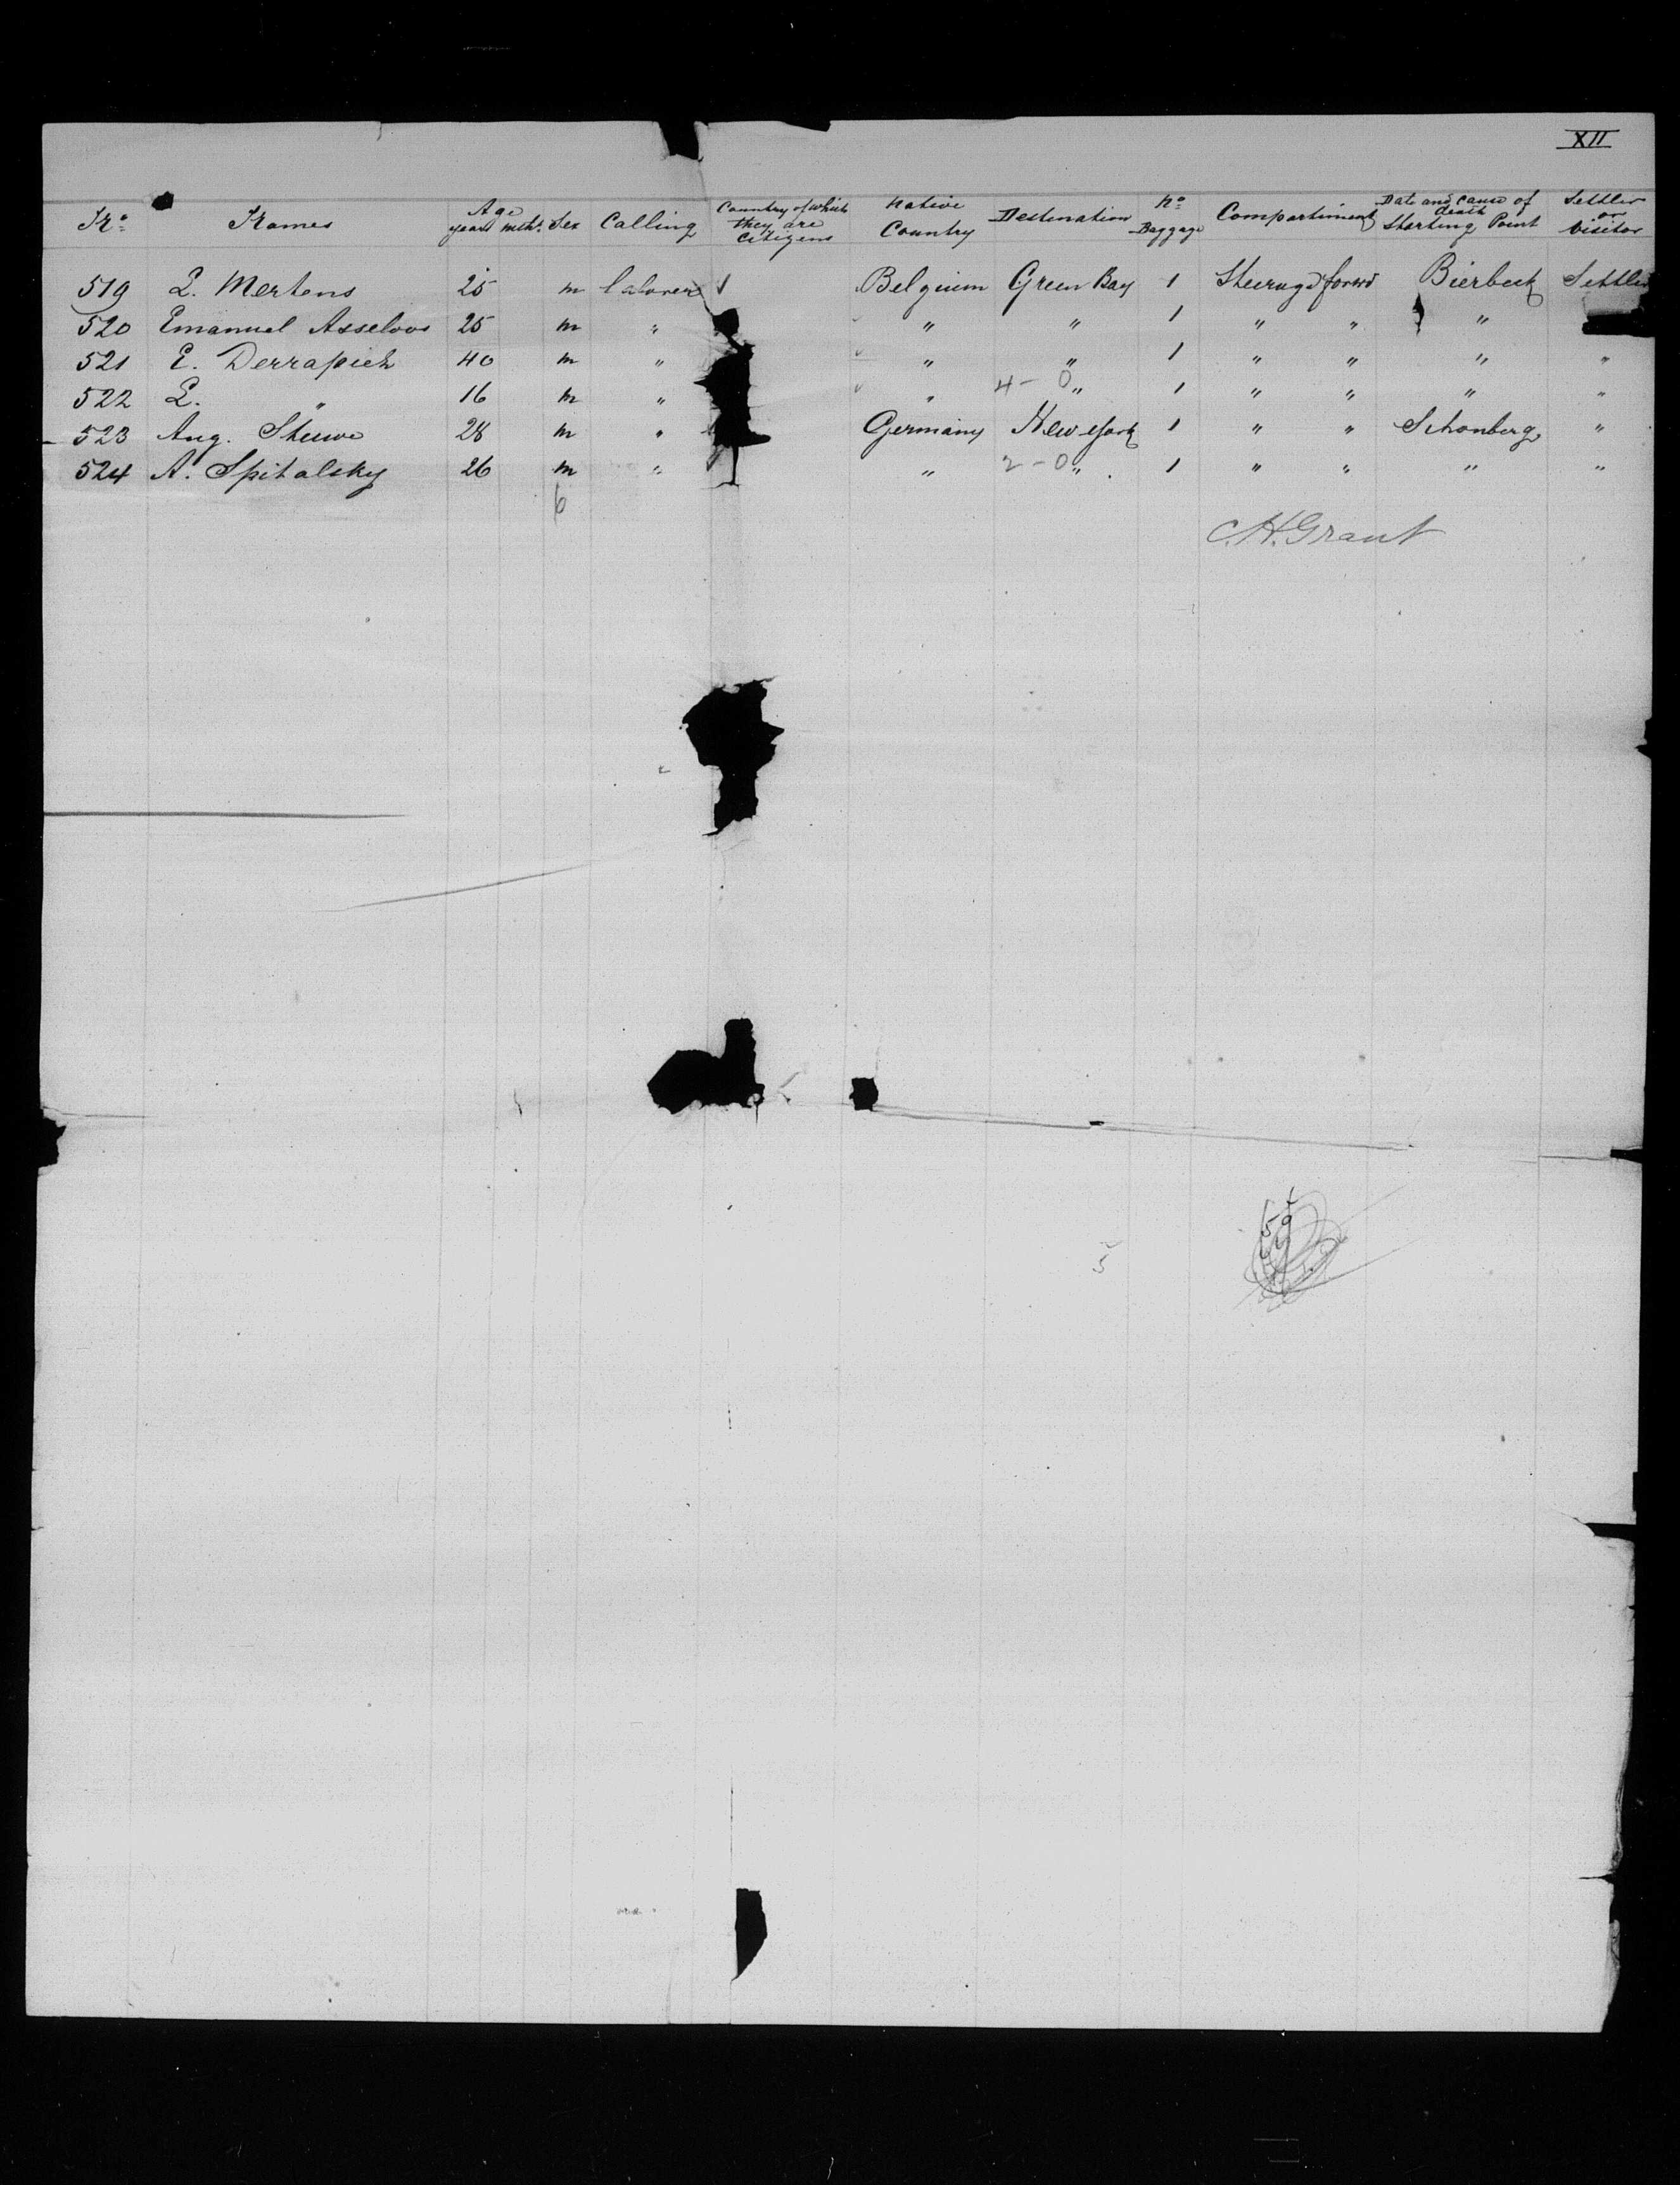 XII
No Names Age years mths. Sex Calling Country of which they are Citizens Native Country Destination No Baggage Compartiment Date and cause of death Starting Point Settler or Visitor
519 L. Mertens 25 m laborer Belgium Green Bay 1 Bierbeek Settler
520 Emanuel Asseloos 25 m " " " 1 " " "
521 E. Derrapieh 40 m " " " 1 " " " "
522 L. " 16 m " " 4-0 " 1 " " " "
523 Aug. Stuwe 28 m " Germany New York 1 " " Schonberg "
524 A. Spitalsky 26 m " " 2-0 " 1 " " " "
6
C.H. Grant